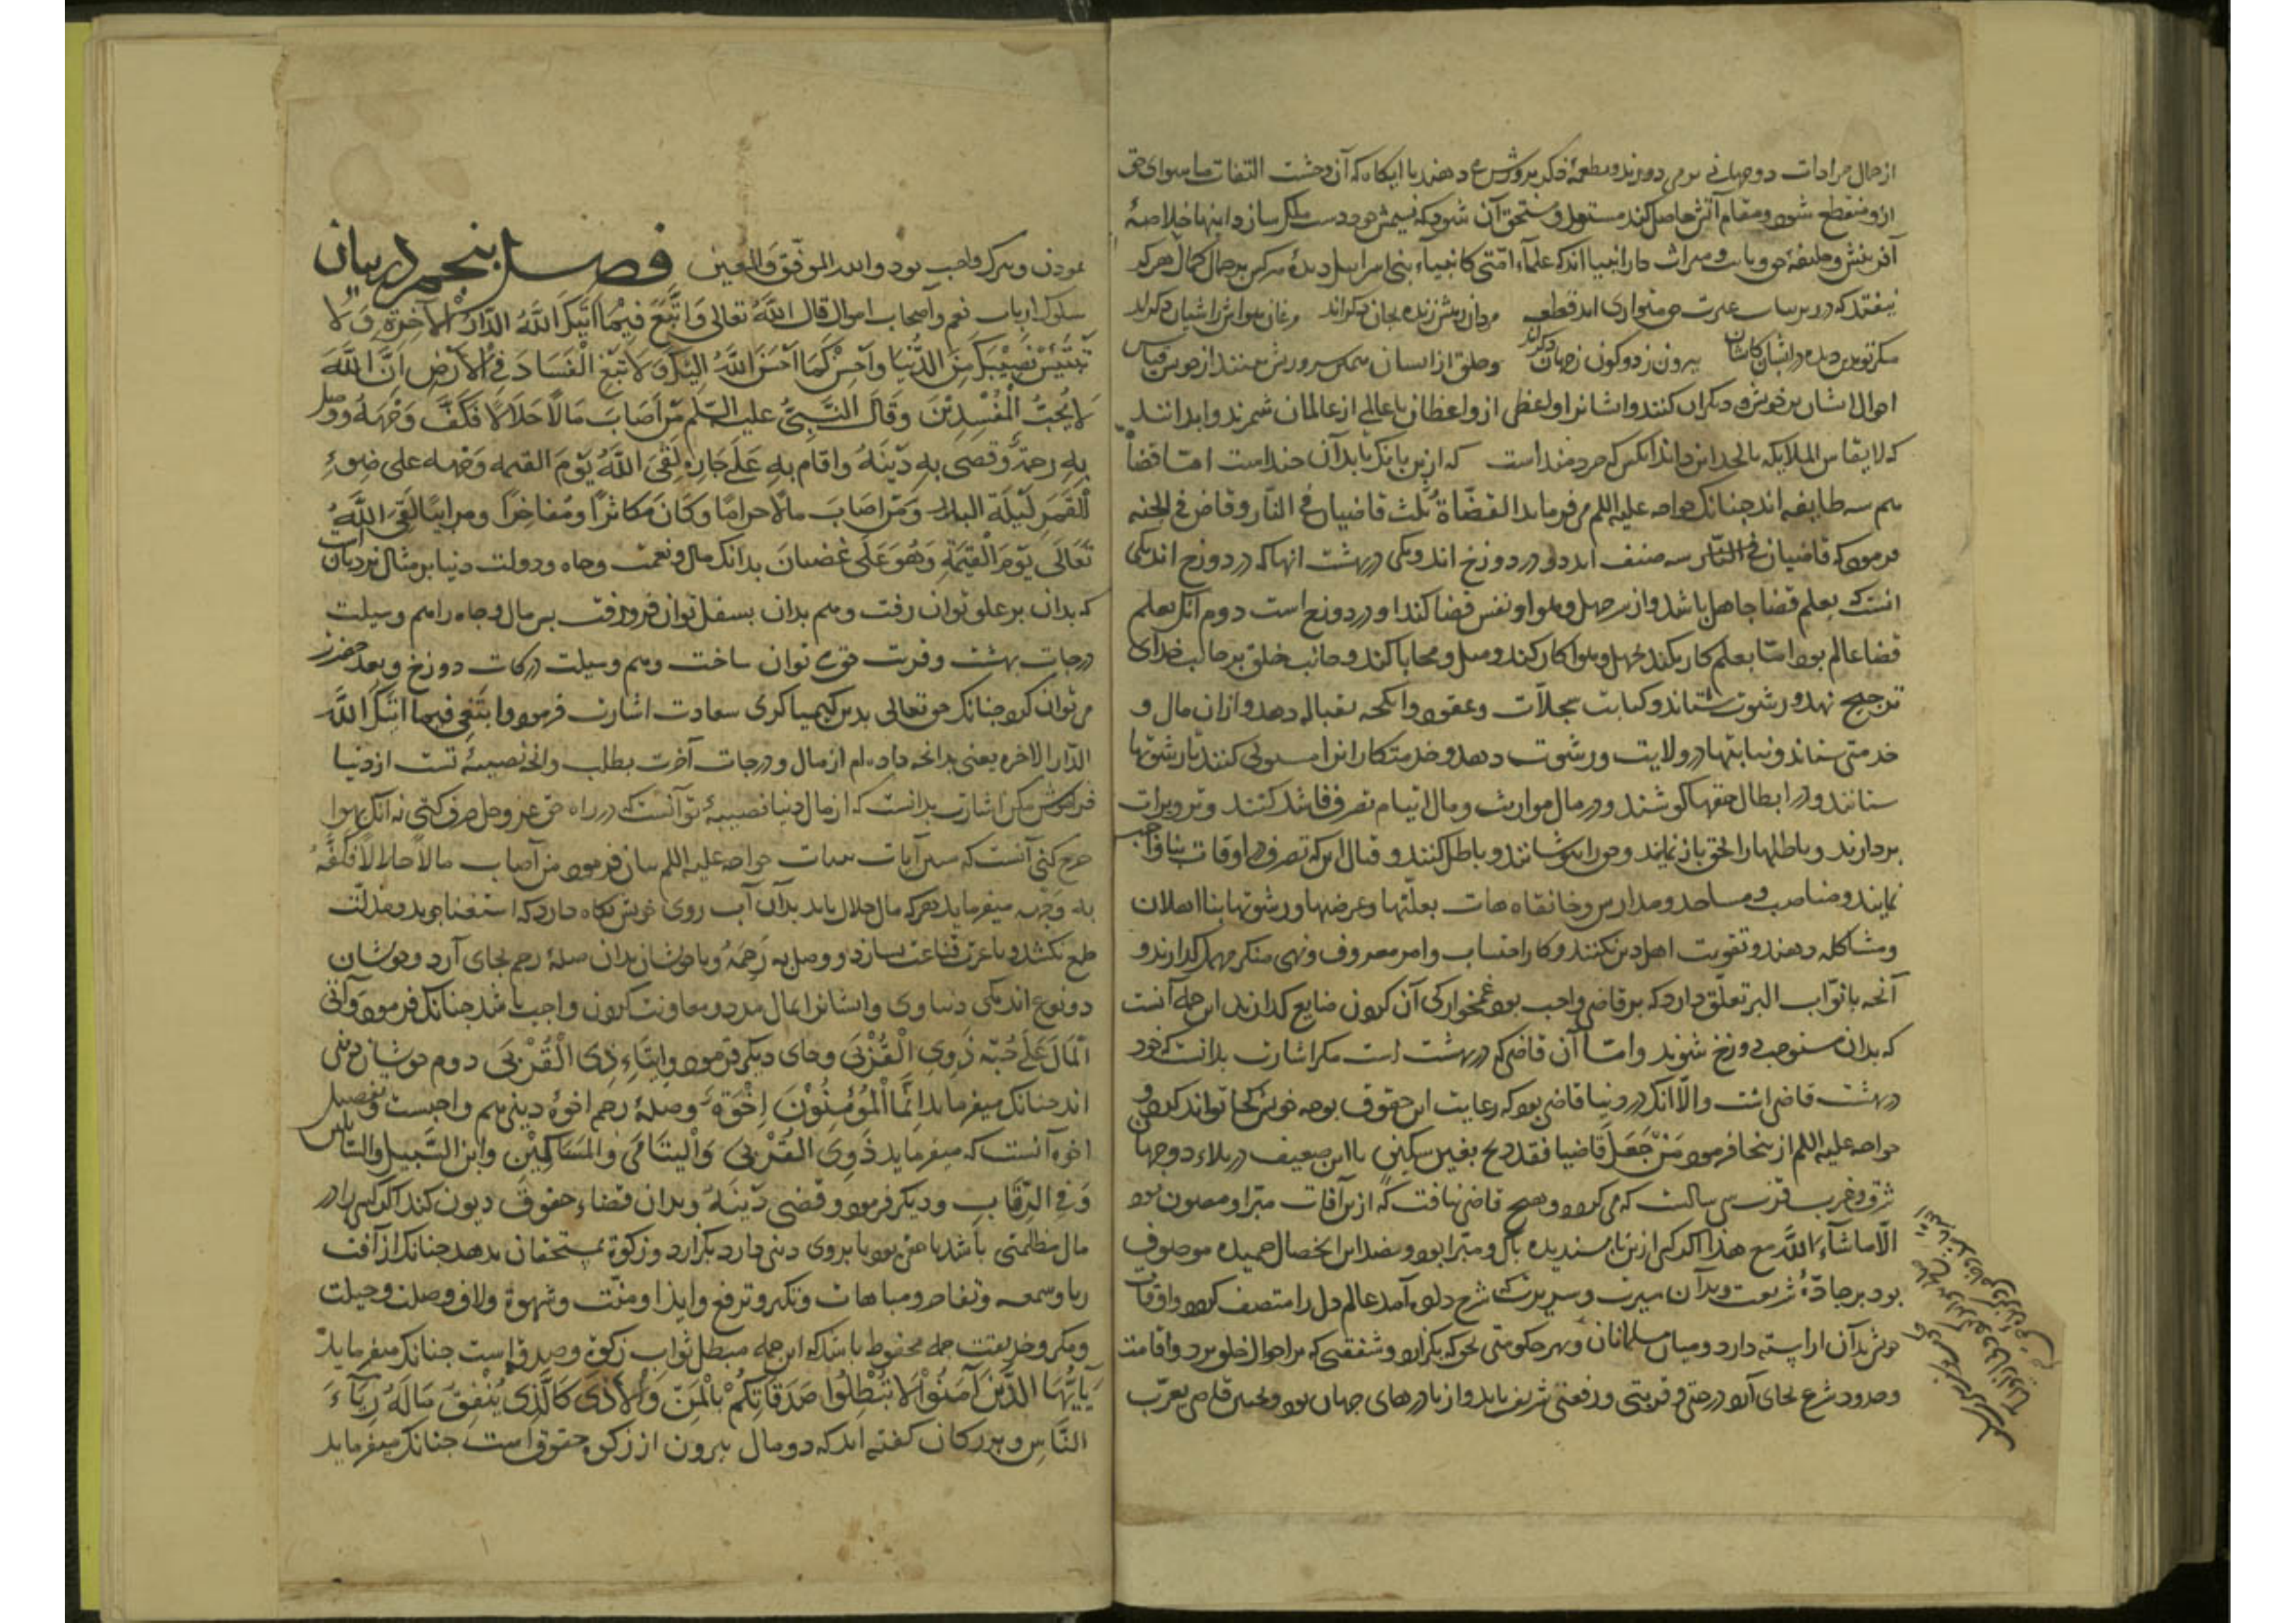 از جمال مرادات دوجهانی برمی دوزند و بطعمهٔ ذکر پرورش می دهند تا آنگاه که آن وحشت التفات ماسوای حق
ازو منقطع شود و مقام انس حاصل کند مستعد و مستحق آن شود که نشیمنش بر دست ملک سازد اینها خلاصهٔ
آفرینش و خلیفهٔ حق و نایب و میراث دار انبیا اند که علماء امتی کانبیاء بنی اسرائیل دیدهٔ هر کس بر جمال کمال هر کس
نیفتد که در زیر قباب غیرت حق متواری اند قطعه مردان رهش زنده بجان دگراند مرغان هواش ز اشیان دگراند
منکر تو بدین دیده در ایشان کایشان بیرون ز دو کون ز جهان دگراند و خلق از ایشان همین سر و ریش بینند از خویش قیاس
احوال ایشان بر خویش و دیگران کنند و ایشانرا واعظی از واعظان یا عالمی از عالمان شمرند و ندانند
که لا یقاس الملایکه بالحدادین داند آنکس که خردمند است که ازین بانک تا بدان چند است اما قضاة
هم سه طایفه اند چنانک خواجه علیه السلم می فرماید القضاة ثلث قاضیان فی النار و قاض فی الجنه
فرمود که قاضیان فی النار سه صنف اند دو در دوزخ اند و یکی در بهشت انها که در دوزخ اند یکی
انست که بعلم قضا جاهل باشد و از سر جهل و هوا و نفس قضا کند او در دوزخ است دوم آنک بعلم
قضا عالم بود اما بعلم کار نکند بجهل و هوا کار کند و میل و محابا کند و جانب خلق بر جانب خدای
ترجیح نهد و رشوت ستاند و کتابت سجلات و عقود و انکحه بقباله دهد و از ان مال و
خدمتی ستاند و نیابتها در ولایت و رشوت دهد و خدمتکارانرا مستولی کند تا رشوتها
ستانند و در ابطال حقها کوشند و در مال مواریث و مال ایتام تصرف فاسد کنند و تزویرات
بردارند و باطلها را بحق باز نمایند و حق را بپوشانند و باطل کنند و قبال این که تصرف در اوقاف بناواجب
نمایند و مناصب و مساجد و مدارس و خانقاهات بعلتها و غرضها و رشوتها بنا اهلان
و مشاکله دهند و تقویت اهل دین نکنند و کار احتساب و امر معروف و نهی منکر مهمل گذارند و
آنچه بابواب البر تعلق دارد که بر قاضی واجب بود غمخوارگی آن کردن ضایع گذارند این جمله آنست
که بدان مستوجب دوزخ شوند و اما آن قاضی که در بهشت است مگر اشارت بدانست که خود
در بهشت قاضی است و الا انک در دنیا قاضی بود که رعایت این حقوق بوجه خویش بجا تواند کردن و
خواجه علیه السلم از ینجا فرمود من جعل قاضیا فقد ذبح بغیر سکین با این ضعیف در بلاد دو جهان
شرق و غرب قرب سی سالست که می گردد و هیچ قاضی نیافت که ازین آفات مبرا و مصون بود
الا ما شاء الله مع هذا اگر کسی ازین ناپسندیدها پاک و مبرا بود و بضد این بخصال حمیده موصوف
بود بر جادهٔ شریعت و بدان سیرت و سریرت که شرح داده آمد عالم عادل را متصف گردد و اوقات
خویش بدان آراسته دارد و میان مسلمانان و بهر حکومتی بحق که بگزارد و شفقتی که بر احوال خلق برد و اقامت
و حدود شرع بجای آرد درجتی و قربتی و رفعتی شریف یابد و از نادرهای جهان بود و بچنین قاضی تقرب
نمودن و تبرک واجب بود والله الموفق والمعین فصل پنجم در بیان
سلوک ارباب نعم و اصحاب اموال قال الله تعالی وابتغ فیما اتیک الله الدار الاخرة ولا
تنس نصیبک من الدنیا واحسن کما احسن الله الیک ولا تبغ الفساد فی الارض ان الله
لا یحب المفسدین وقال النبی علیه السلم من اصاب مالا حلالا فکف وجهه ووصل
به رحمه وقضی به دینه واقام به علی جاره لقی الله یوم القیمه وجهه علی ضوء
القمر لیلة البدر ومن اصاب مالا حراما وکان مکاثرا ومفاخرا ومرائیا لقی الله
تعالی یوم القیمة وهو علی غضبان بدانک مال و نعمت و جاه و دولت دنیا بر مثال نردبان است
که بدان بر علو توان رفت و هم بدان بسفل توان فرو رفت پس مال و جاه را هم وسیلت
درجات بهشت و قربت حق توان ساخت و هم وسیلت درکات دوزخ و بعد حضرت
می توان کرد چنانک حق تعالی بدین کیمیاگری سعادت اشارت فرمود وابتغ فیما اتیک الله
الدار الاخره یعنی بدانچه داده ام از مال و درجات آخرت بطلب و آنچه نصیبهٔ تست از دنیا
فراموش مکن اشارت بدانست که از مال دنیا نصیبهٔ تو آنست که در راه حق عز و جل صرف کنی نه آنک بهوا
خرج کنی آنست که مبین آیات بینات خواجه علیه السلم بیان فرمود من اصاب مالا حلالا فکف
به وجهه میفرماید هر که مال حلال یابد بدان آب روی خویش نگاه دارد که استغنا جوید و مذلت
طمع نکشد و با عزت قناعت بسازد و وصل به رحمه و با خویشان بدان صلهٔ رحم بجای آرد و خویشان
دو نوع اند یکی دنیاوی و ایشانرا بمال مدد و معاونت کردن واجب باشد چنانک فرمود و آتی
المال علی حبه ذوی القربی و جای دیگر فرمود وایتاء ذی القربی دوم خویشان دینی
اند چنانک میفرماید انما المؤمنون اخوة و صلهٔ رحم اخوهٔ دینی هم واجبست و تفصیل
اخوه آنست که میفرماید ذوی القربی والیتامی والمساکین وابن السبیل والسائلین
وفی الرقاب و دیگر فرمود وقضی دینه و بدان قضاء حقوق دیون کند اگر کسی را در
مال مظالمتی باشد یا حقی بود یا بر وی دینی دارد بگزارد و زکوة بمستحقان بدهد چنانک از آفت
ریا و سمعه و تفاخر و مباهات و تکبر و ترفع و ایذا و منت و شهوة و لاف و وصلت و حیلت
و مکر و خدیعت جمله محفوظ باشد که این جمله مبطل ثواب زکوة و صدقه است چنانک میفرماید
یایها الذین آمنوا لا تبطلوا صدقاتکم بالمن والاذی کالذی ینفق ماله ریاء
الناس و بزرگان گفته اند که در مال بیرون از زکوة حقوق است چنانک میفرماید